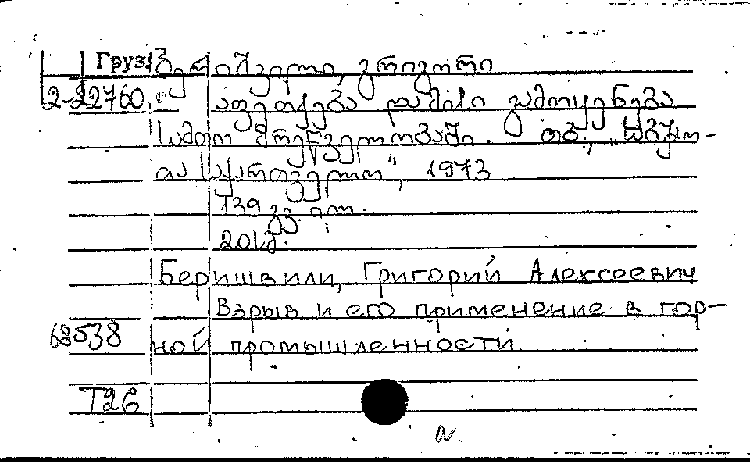 Груз ბერიშვილი, გრიგორი
2-22760. აფეთქება და მისი გამოყენება
სამთო მრეწველობაში. თბ., „საბჭო-
თა საქართველო“, 1973
139 გვ. ილ.
Беришвили, Григорий Алексеевич
Взрыв и его применение в гор-
68538 ной промышленности
Т26